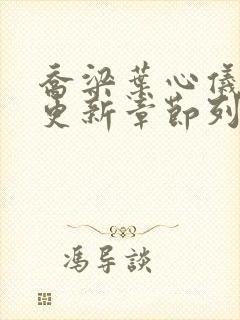 乔梁葉心儀
更新章節列
馮导談